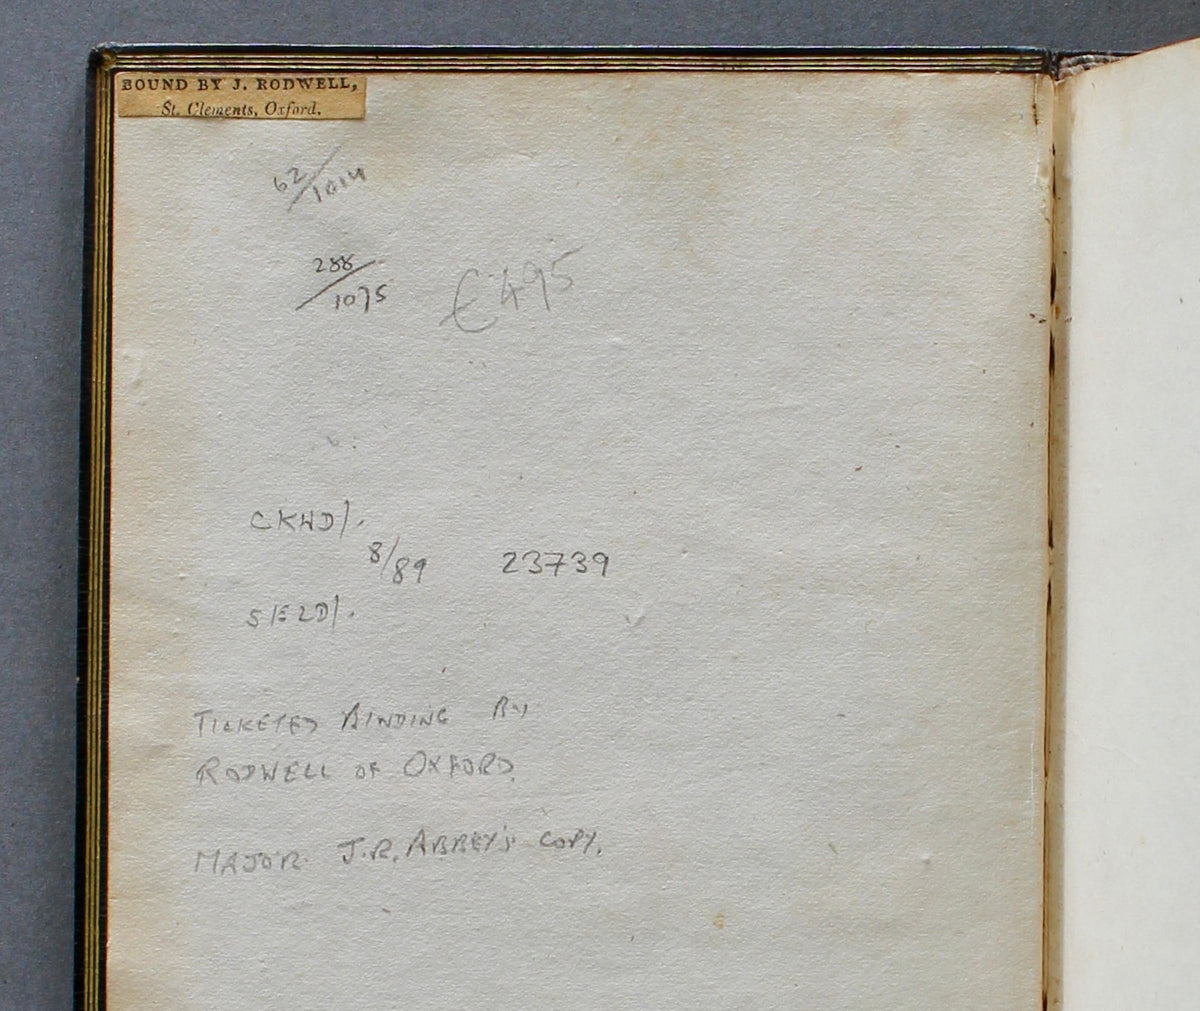 BOUND BY J. RODWELL,
St. Clements, Oxford.
62/1014
288/1075
£495
CKWD/.
8/89
23739
S/E2D/.
TICKETED BINDING BY
RODWELL OF OXFORD.
MAJOR J.R. ABBEY'S COPY.